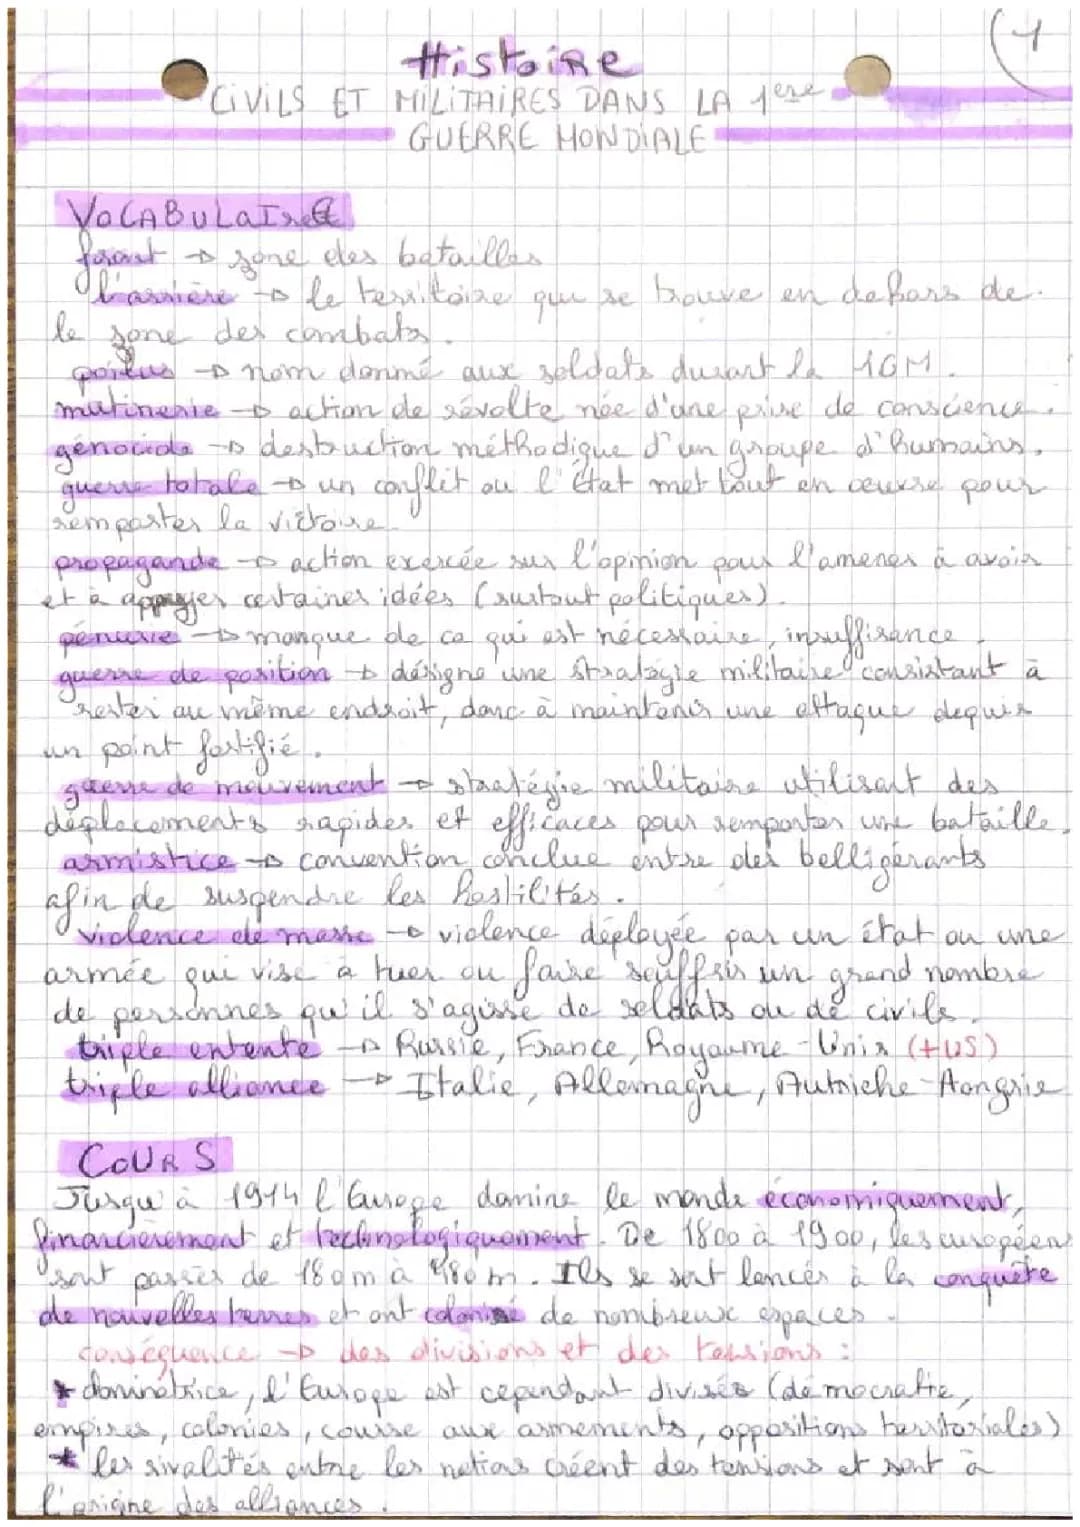 (1
Histoire
CIVILS ET MILITAIRES DANS LA 1ere
GUERRE MONDIALE
VOCABULAIRE
front → zone des batailles
l'arrière → le territoire qui se trouve en dehors de
le zone des combats.
poilus → nom donné aux soldats durant la 1GM.
mutinerie → action de révolte née d'une prise de conscience.
génocide → destruction méthodique d'un groupe d'humains.
guerre totale → un conflit ou l'État met tout en oeuvre pour
remporter la victoire.
propagande → action exercée sur l'opinion pour l'amener à avoir
et à appuyer certaines idées (surtout politiques).
pénurie → manque de ce qui est nécessaire, insuffisance.
guerre de position → désigne une stratégie militaire consistant à
rester au même endroit, donc à maintenir une attaque depuis
un point fortifié.
guerre de mouvement → stratégie militaire utilisant des
déplacements rapides et efficaces pour remporter une bataille.
armistice → convention conclue entre des belligérants
afin de suspendre les hostilités.
violence de masse → violence déployée par un état ou une
armée qui vise à tuer ou faire souffrir un grand nombre
de personnes qu'il s'agisse de soldats ou de civils.
triple entente → Russie, France, Royaume-Unis (+US)
triple alliance → Italie, Allemagne, Autriche-Hongrie
COURS
Jusqu'à 1914 l'Europe domine le monde économiquement,
financièrement et technologiquement. De 1800 à 1900, les européens
sont passés de 180m à 480m. Ils se sont lancés à la conquête
de nouvelles terres et ont colonisé de nombreux espaces.
conséquence → des divisions et des tensions :
* dominatrice, l'Europe est cependant divisée (démocratie,
empires, colonies, course aux armements, oppositions territoriales)
* les rivalités entre les nations créent des tensions et sont à
l'origine des alliances.